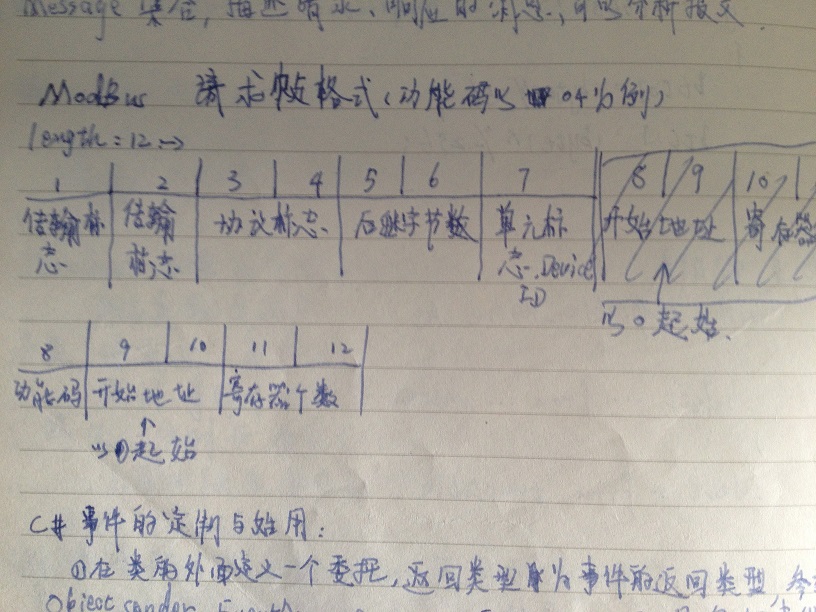 Message 集合, 描述请求、响应的消息, 可以分析报文.
ModBus 请求帧格式(功能码以 04为例)
length = 12 →
1 2 3 4 5 6 7 8 9 10
传输标志 传输标志 协议标志 后继字节数 单元标志.Device ID 开始地址 寄存器
以0起始.
8 9 10 11 12
功能码 开始地址 寄存器个数
以0起始
C# 事件的定制与始用:
①在类的外面定义一个委托, 返回类型 为事件的返回类型,
Object sender,